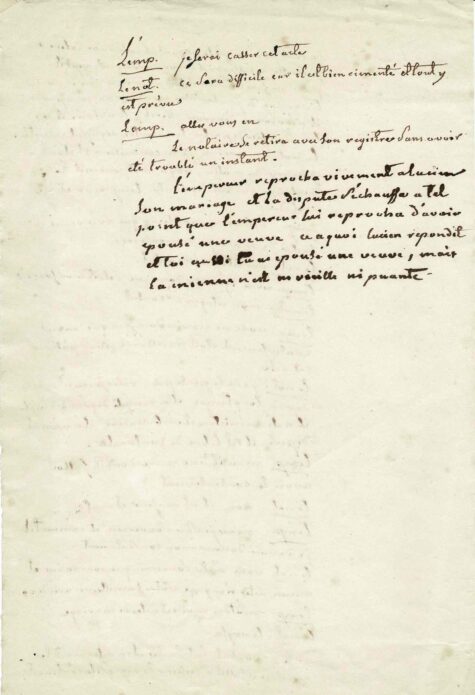 L'emp. je ferai casser cet acte
Le not. ce sera difficile car il est bien cimenté et tout y
est prévu
L'emp. allez vous en
Le notaire se retira avec son registre sans avoir
été troublé un instant.
L'empereur reprocha vivement a lucien
son mariage et la dispute s'échauffa a tel
point que l'empereur lui reprocha d'avoir
epousé une veuve ce a quoi lucien repondit
et toi aussi tu as epousé une veuve, mais
la mienne n'est ni vieille ni puante -